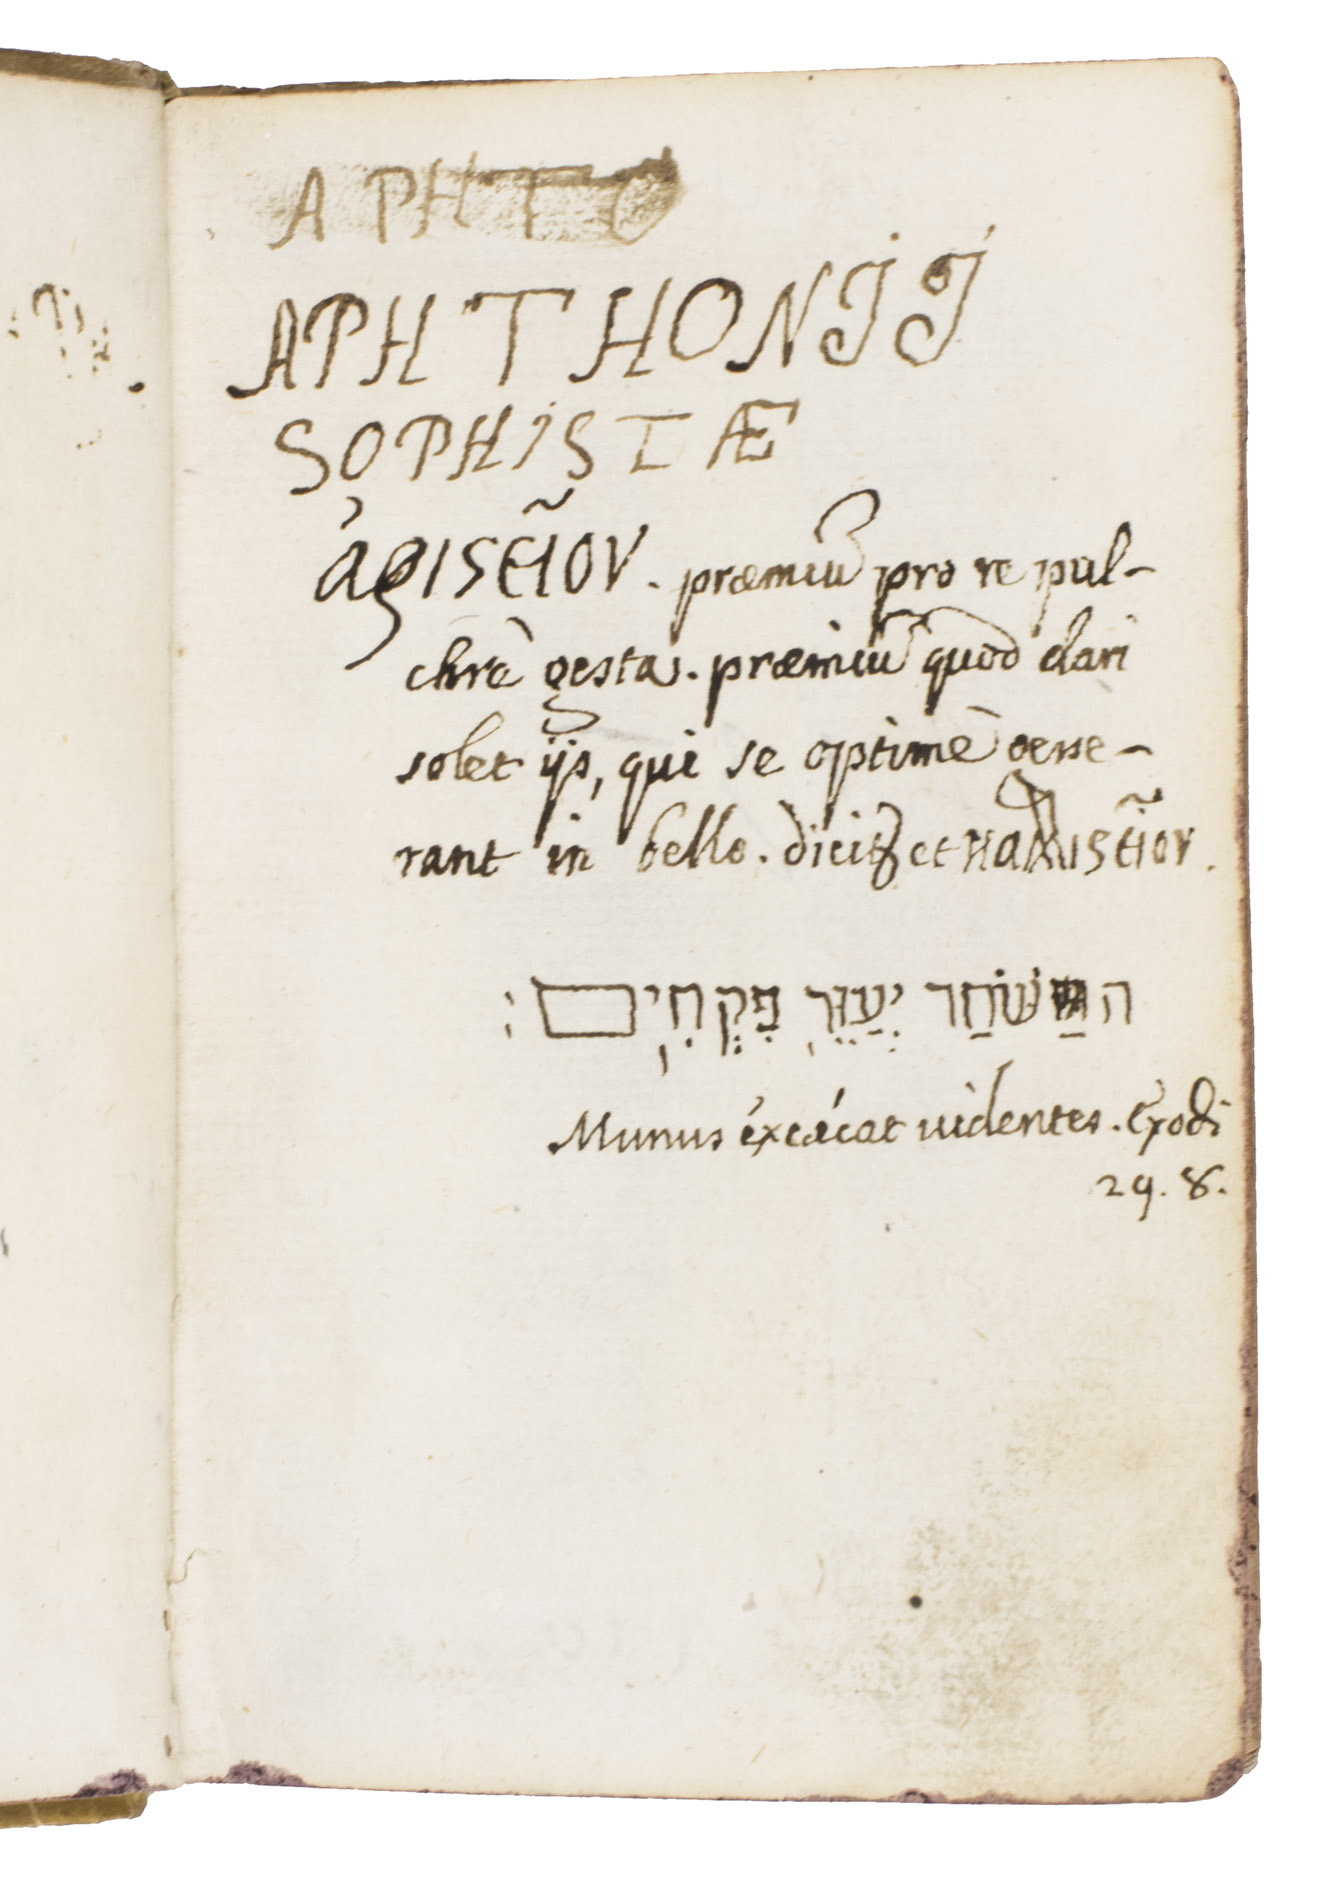 APHTO
APHTHONJJ
SOPHISTÆ
ἀριστεῖον. præmiũ pro re pul-
chrè gesta. præmiũ quod dari
solet ijs, qui se optimè gesse-
rant in bello. dicitꝛ et καλλιστεῖον.
השֹׁחַד יְעַוֵּר פִּקְחִים׃
Munus excæcat uidentes. Exodi
29. 8.